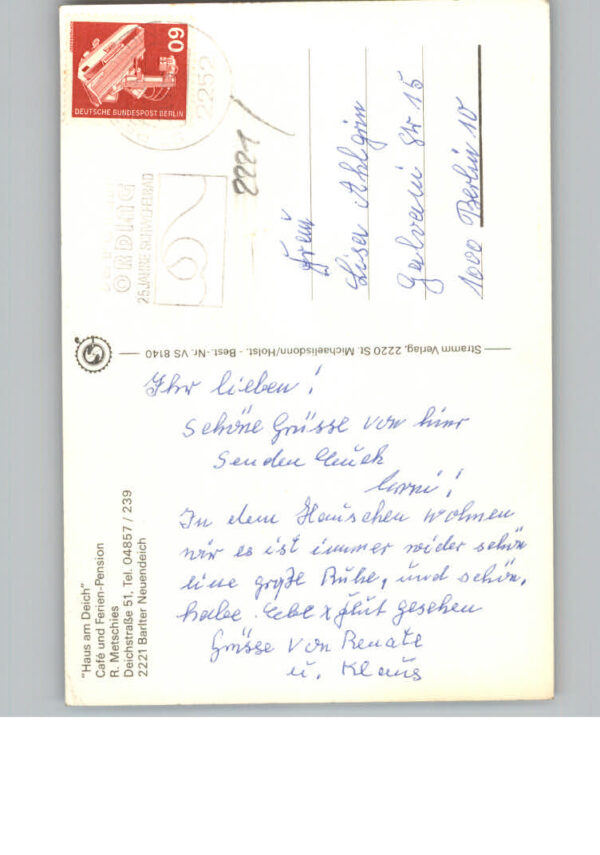 60
DEUTSCHE BUNDESPOST BERLIN
2252
ORDING
25 JAHRE SCHWEFELBAD
2221
Frau
Lisa Ahlgrim
Galvani Str 15
1000 Berlin 10
Stramm Verlag, 2220 St. Michaelisdonn/Holst. - Best.-Nr. VS 8140
Ihr lieben!
schöne Grüsse von hier
senden Euch
In dem Häuschen wohnen
wir es ist immer wider schön
eine große Ruhe, und schön.
habe. Ebbe x Flut gesehen
Grüsse von Renate
u. Klaus
"Haus am Deich"
Café und Ferien-Pension
R. Metschies
Deichstraße 51, Tel. 04857 / 239
2221 Barlter Neuendeich